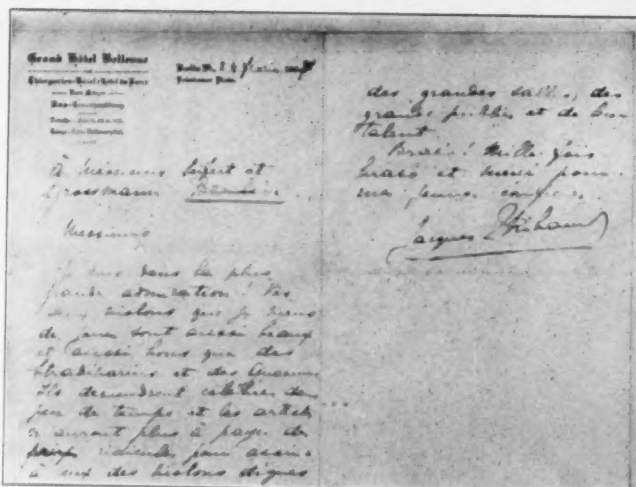 Grand Hôtel Bellevue
Berlin W. 24 Février
Potsdamer Platz
à Messieurs Seifert et
Grossmann
Messieurs
Je suis dans la plus
grande admiration! Vos
deux violons que je viens
de jouer sont aussi beaux
et aussi bons que des
Stradivarius et des
Ils deviendront célèbres dans
peu de temps et les artistes
n'auront plus à payer des
prix ridicules pour avoir
à eux des violons dignes
des grandes salles, des
grands publics et de leur
talent.
Bravo! Mille fois
bravo et merci pour
mes jeunes
Jacques Thibaud